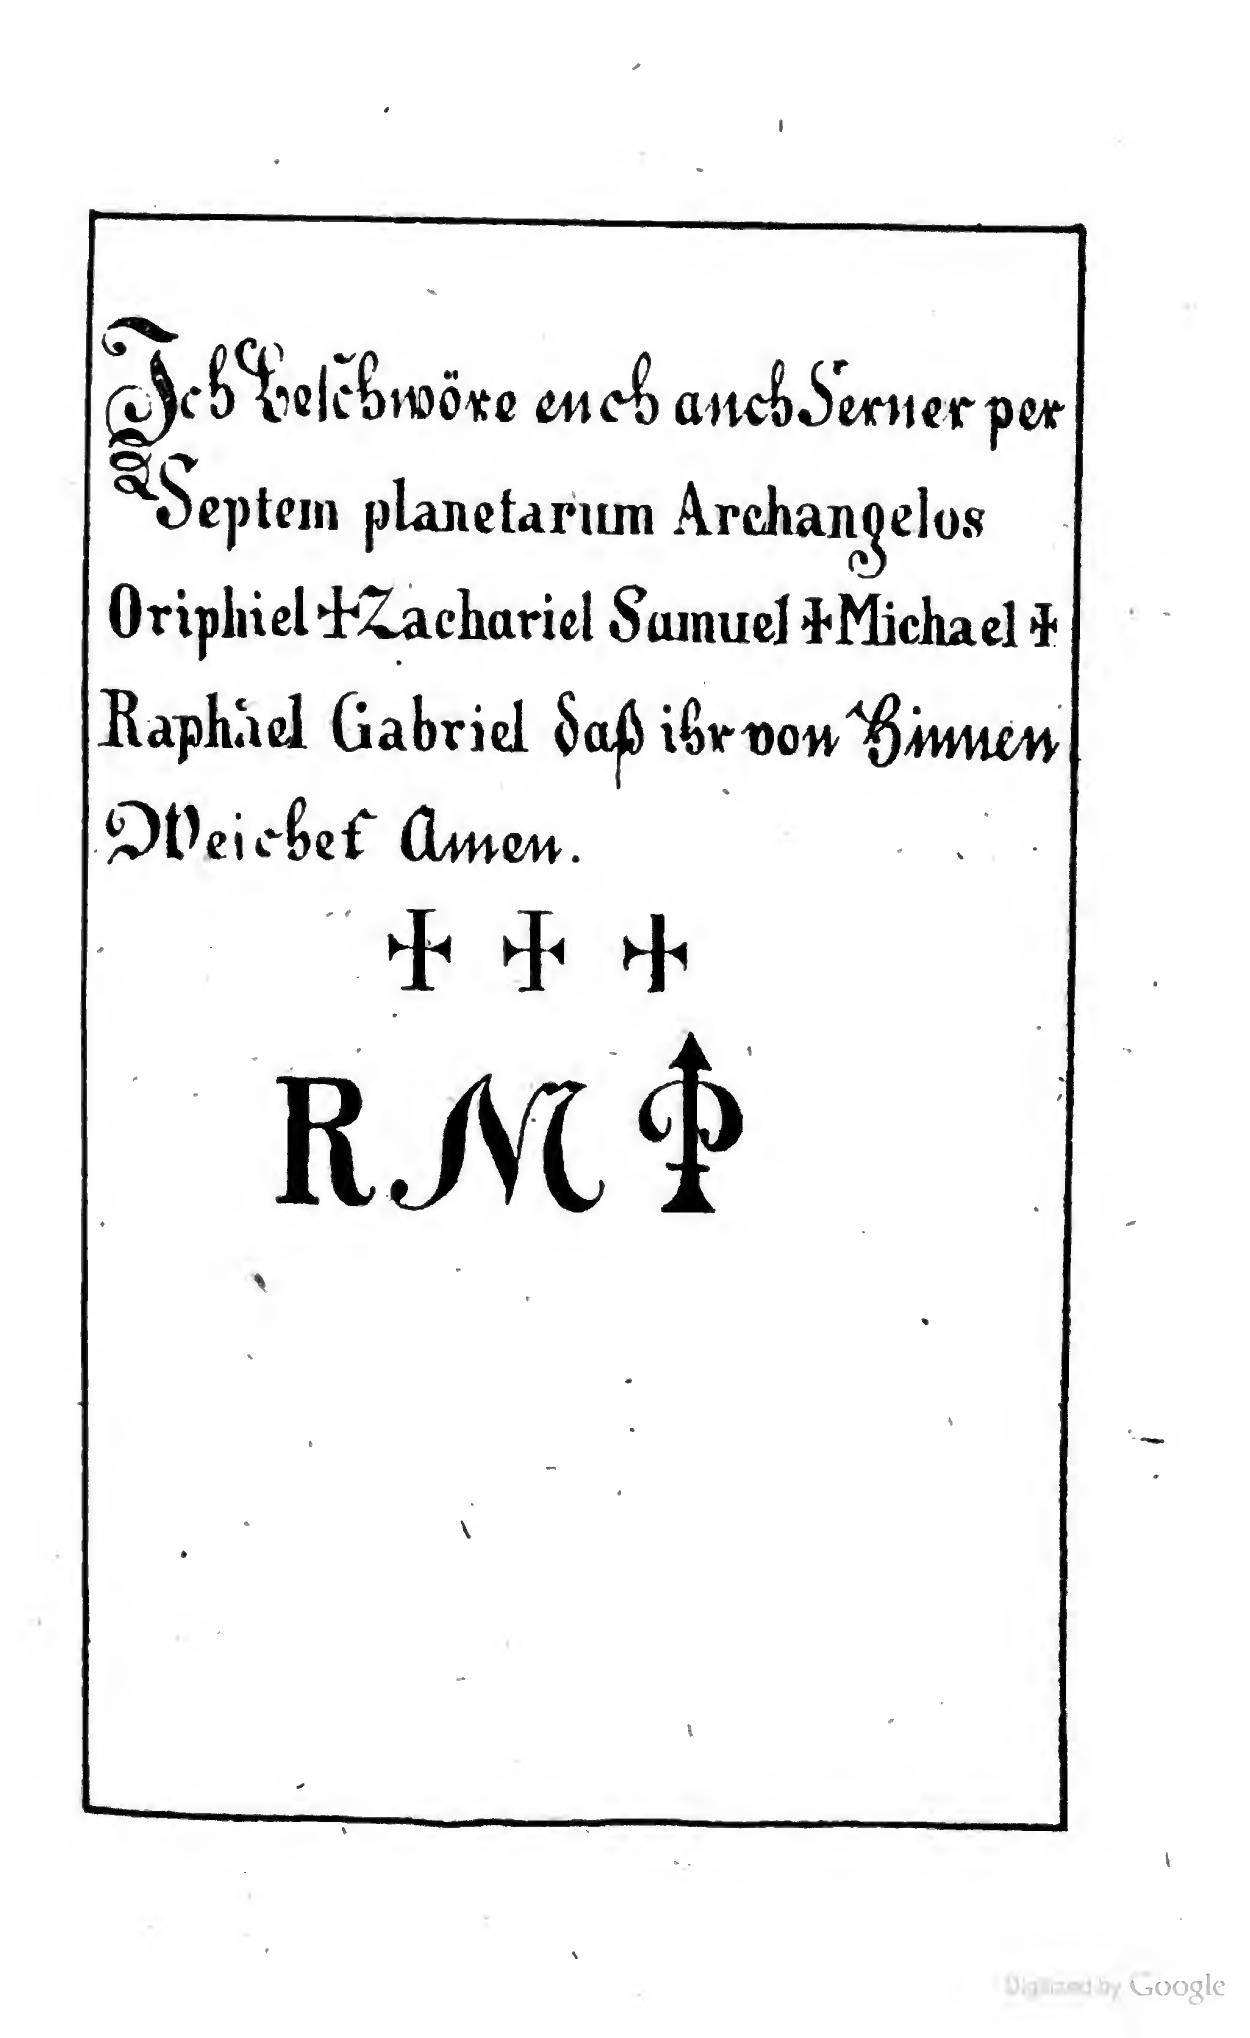 Ich Beschwöre euch auch Ferner per
Septem planetarum Archangelos
Oriphiel ✠ Zachariel Samuel ✠ Michael ✠
Raphael Gabriel daß ihr von Hinnen
Weichet Amen.
✠ ✠ ✠
R M P
Digitized by Google